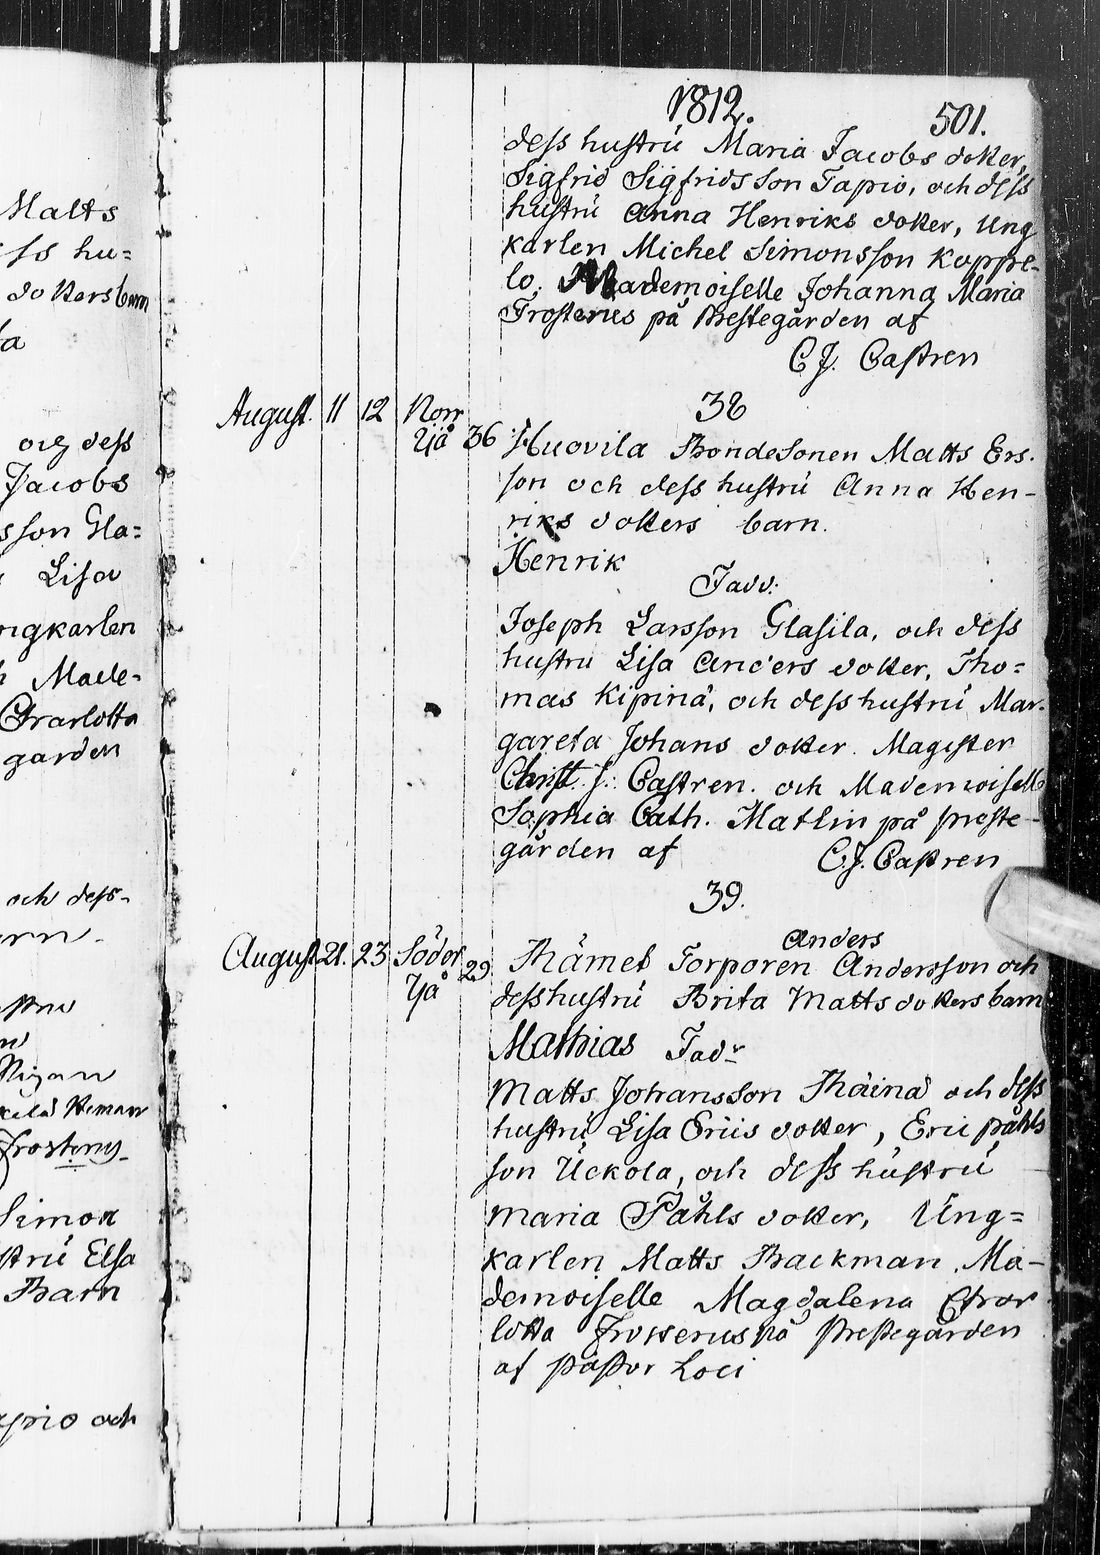 Matts
ss hu=
dottersbarn
ta
och dess
Jacobs
sson Gla=
Lisa
ngkarlen
h Made-
Charlotta
garden
och dess
Simon
strü Elsa
Barn
och
1812.
501.
dess hustrü Maria Jacobs dotter,
Sigfrid Sigfridsson Tapio, och dess
hustrü Anna Henriks dotter, Ung
karlen Michel Simonsson Koppe-
lo. Mademoiselle Johanna Maria
Frosterus på Prestegården af
C J. Castren
38
August. 11 12 Norr
Yjå 36 Huovila Bondesonen Matts Ers.
son och dess hustrü Anna Hen-
riks dotters barn.
Henrik
Fadd:
Joseph Larsson Glasila, och dess
hustrü Lisa Anders dotter, Tho=
mas Kipinä, och dess hustrü Mar.
gareta Johans dotter. Magister
Christ. J: Castren. och Mademoisell
Sophia Cath. Matlin på preste-
gården af C.J. Castren
39.
Anders
August 21. 23 Söder
Yjå 29 Thämet Torparen Andersson och
dess hustrü Brita Matts dotters barn
Mathias Fadr
Matts Johansson Thäinä och dess
hustrü Lisa Eriis dotter, Eric påhls
son Uckola, och dess hüstrü
Maria Påhls dotter, Ung=
karlen Matts Backman, Ma-
demoiselle Magdalena Char
lotta Frosterus på Prestegården
af pastor Loci